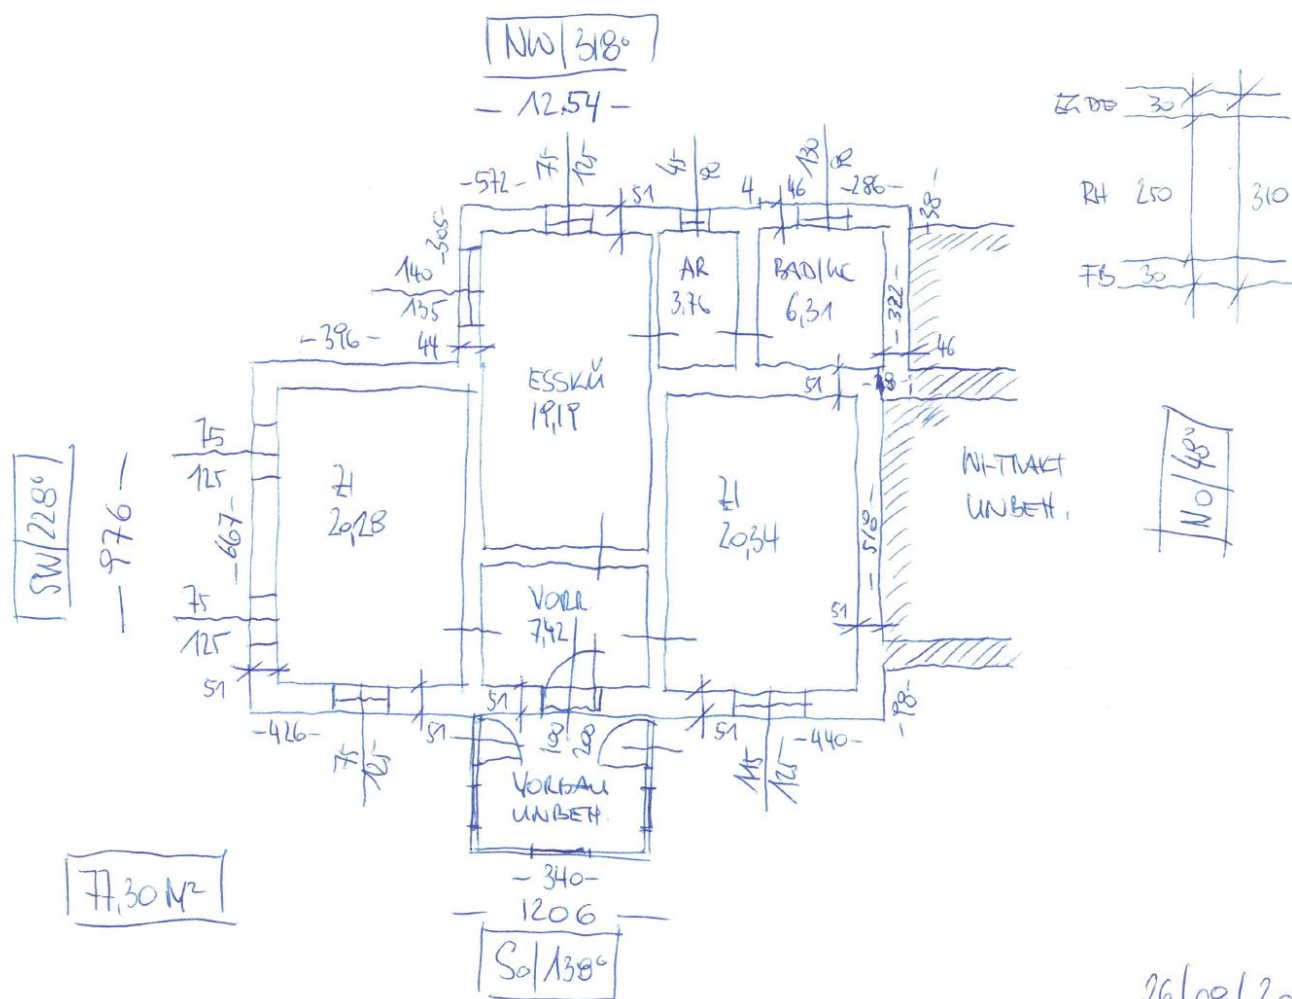 NW/318°
- 12.54 -
EZ DE 30
RH 250 310
FB 30
-572-
75
125
51
45
4
46
130
-286-
-38-
-305-
140
135
44
-396-
AR
3,76
BAD/WC
6,31
-322-
46
51
ESSKÜ
19,19
75
125
-667-
75
125
51
SW/228°
- 976 -
ZI
20,28
ZI
20,34
-518-
51
WI-TRAKT
UNBEH.
NO/48°
VORR
7,42
51
-426-
75
125
51
51
115
125
-440-
-98-
VORBAU
UNBEH.
- 340 -
- 1206 -
SO/138°
77,30 M²